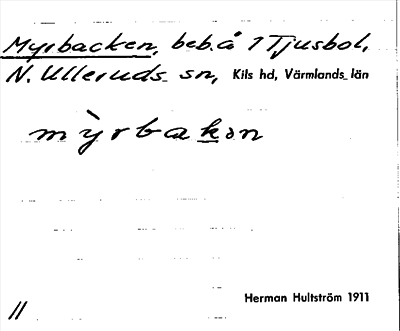 Myrbacken, beb. å 1 Tjusbol,
N. Ulleruds sn, Kils hd, Värmlands län
mỳrbakən
Herman Hultström 1911
11